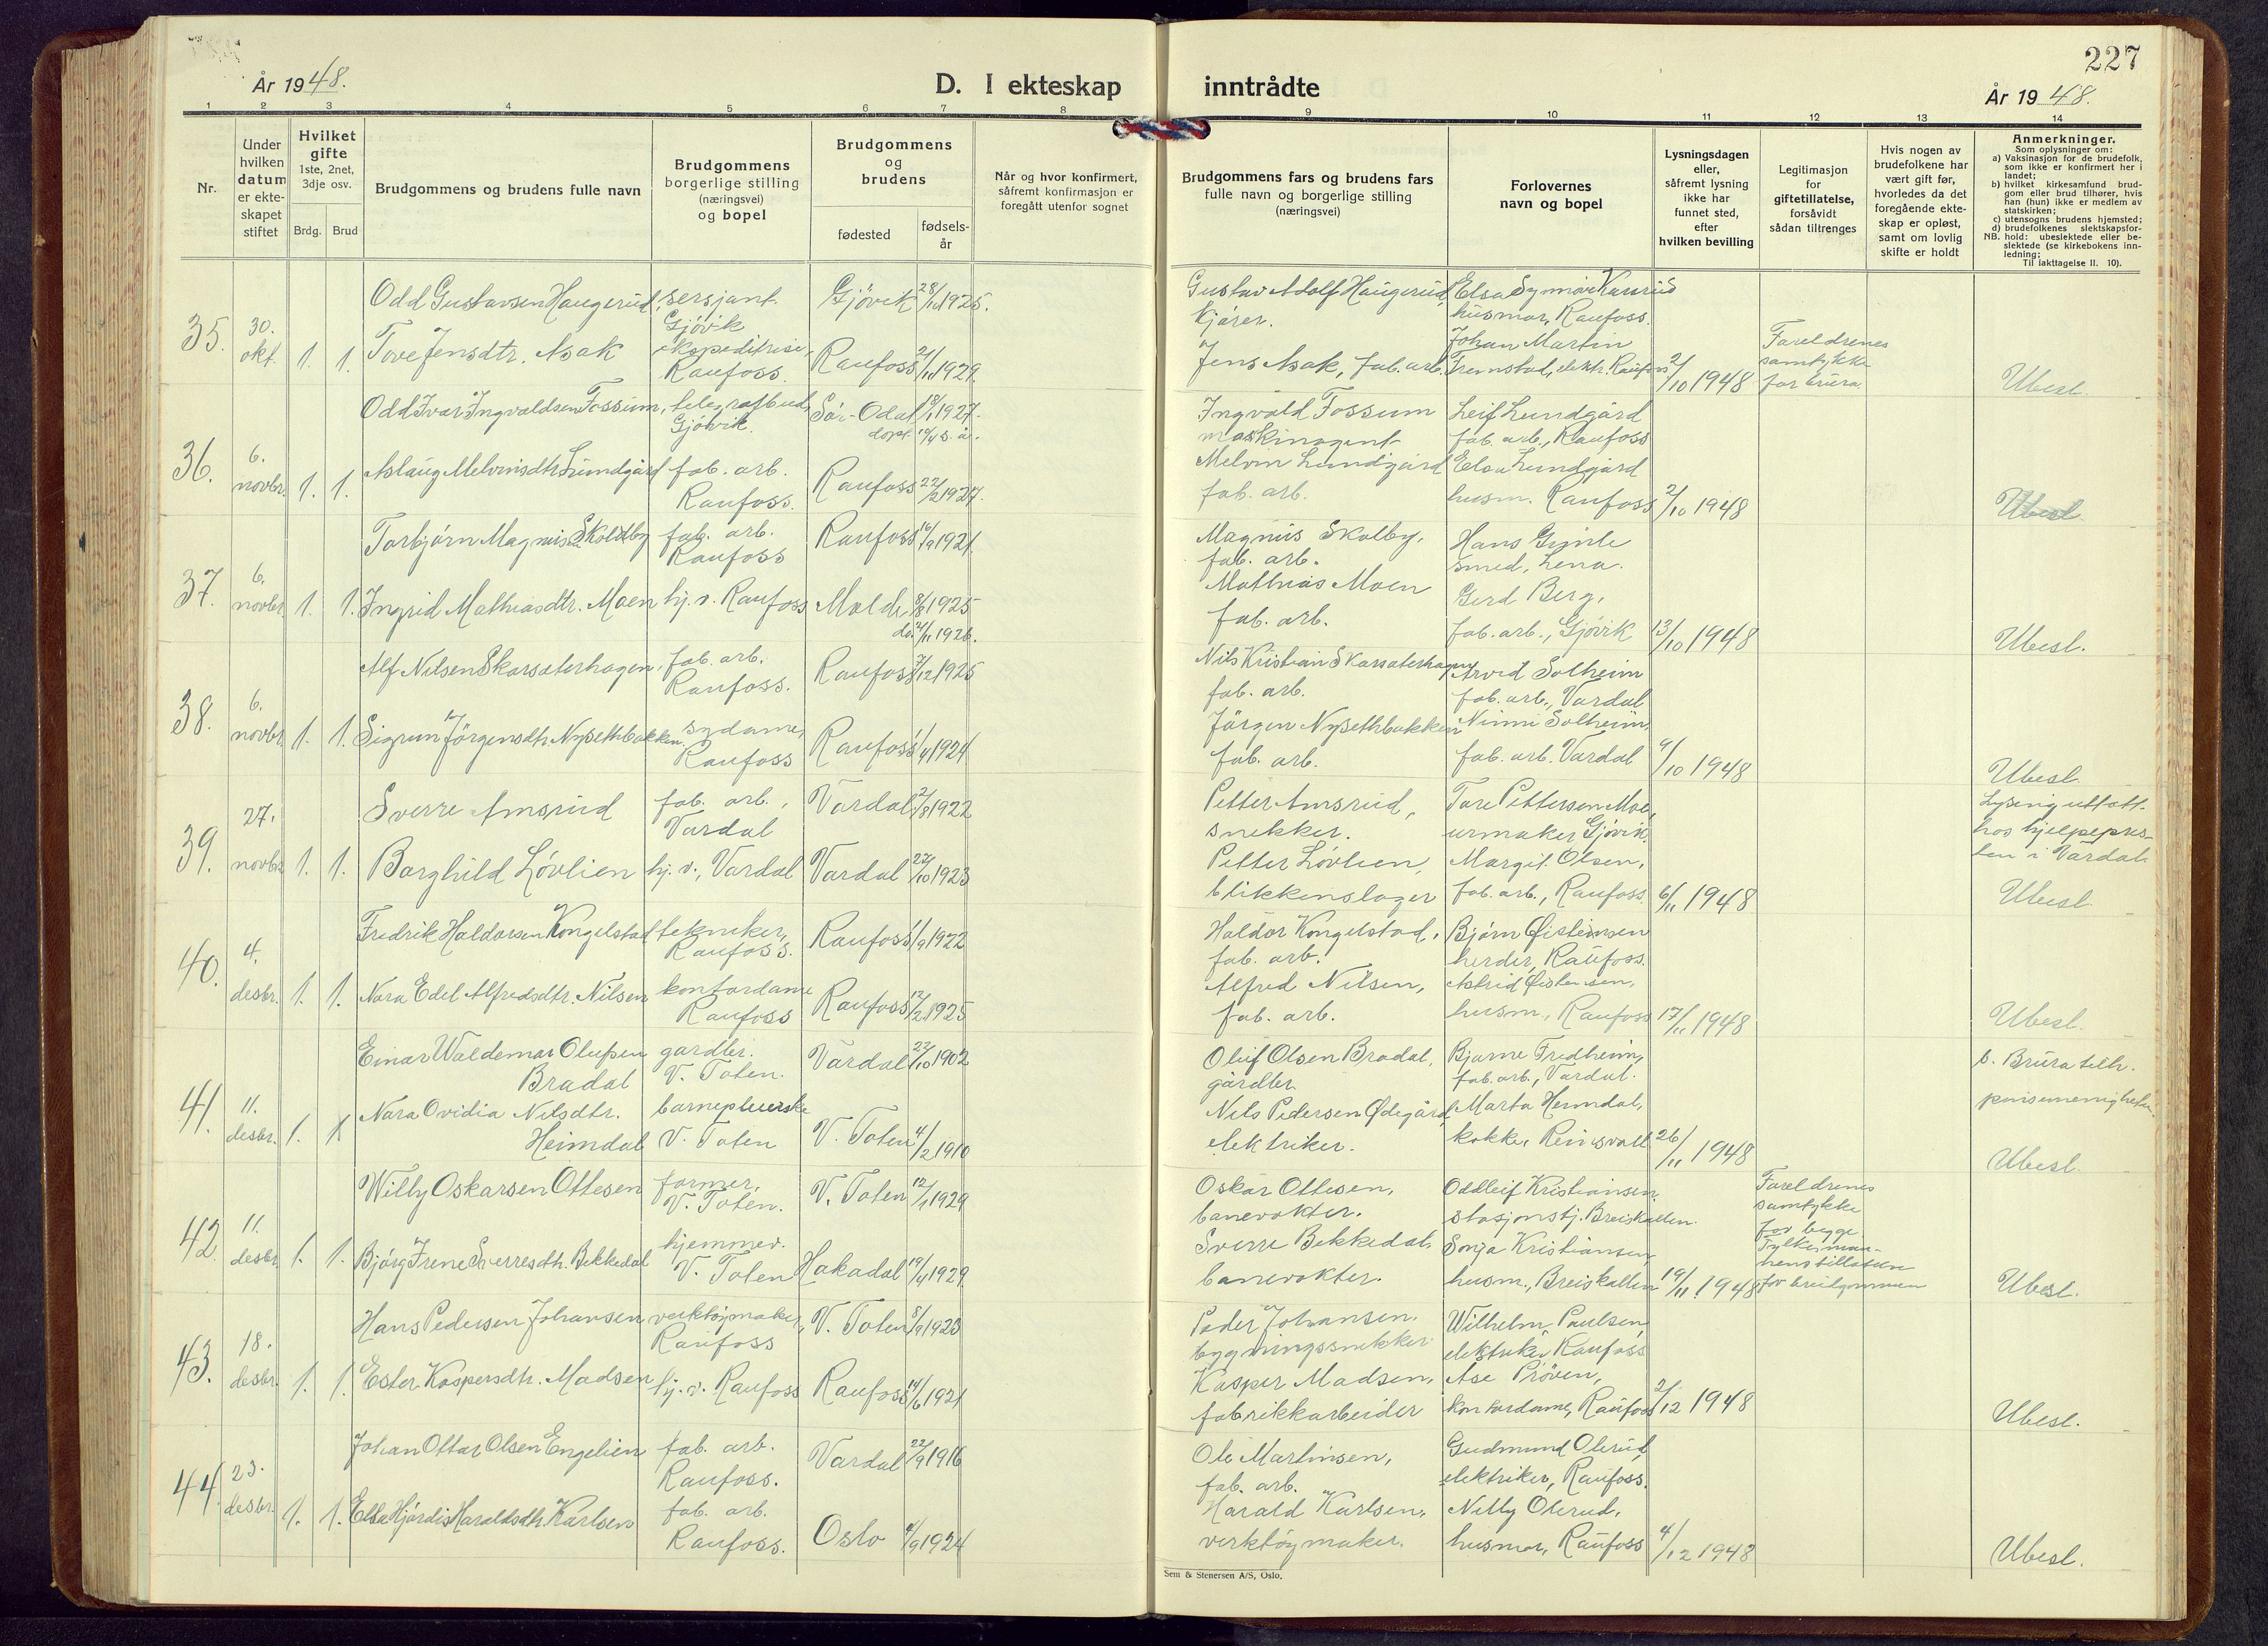 227
År 1948.
D. I ekteskap inntrådte
År 1948.
1 2 3 4 5 6 7 8 9 10 11 12 13 14
Nr.
Under hvilken datum er ekte-skapet stiftet
Hvilket gifte
1ste, 2net, 3dje osv.
Brdg. Brud
Brudgommens og brudens fulle navn
Brudgommens borgerlige stilling (næringsvei) og bopel
Brudgommens og brudens
fødested
fødsels-år
Når og hvor konfirmert, såfremt konfirmasjon er foregått utenfor sognet
Brudgommens fars og brudens fars fulle navn og borgerlige stilling (næringsvei)
Forlovernes navn og bopel
Lysningsdagen eller, såfremt lysning ikke har funnet sted, efter hvilken bevilling
Legitimasjon for giftetillatelse, forsåvidt sådan tiltrenges
Hvis nogen av brudefolkene har vært gift før, hvorledes da det foregående ekte-skap er opløst, samt om lovlig skifte er holdt
Anmerkninger.
Som oplysninger om:
a) Vaksinasjon for de brudefolk, som ikke er konfirmert her i landet;
b) hvilket kirkesamfund brud-gom eller brud tilhører, hvis han (hun) ikke er medlem av statskirken;
c) utensogns brudens hjemsted;
d) brudefolkenes slektskapsfor-hold: ubeslektede eller be-slektede (se kirkebokens inn-ledning;
NB.
Til iakttagelse II. 10).
35. 30. okt. 1. 1.
Odd Gustavsen Haugerud, sersjant Gjøvik Gjøvik 28/10 1925.
Tove Jensdtr. Asak ekspeditrise, Raufoss Raufoss 21/11 1929.
Gustav Adolf Haugerud, kjører.
Jens Asak, fab. arb.
Elsa Synnøve
husmor, Raufoss.
Johan Martin
Fremstad, elektr. Raufoss 2/10 1948
Foreldrenes samtykke for brura
Ubesl.
36. 6. novbr. 1. 1.
Odd Ivar Ingvaldsen Fossum, telegrafbud, Gjøvik. Sør-Odal 19/1 1927.
døpt s. år.
Aslaug Melvinsdtr. Lundgård fab. arb. Raufoss. Raufoss 22/2 1927.
Ingvald Fossum
maskinagent
Melvin Lundgård
fab. arb.
Leif Lundgård
fab. arb., Raufoss
Elsa Lundgård
husm. Raufoss 2/10 1948
Ubesl.
37. 6. novbr. 1. 1.
Torbjørn Magnussen fab. arb. Raufoss Raufoss 16/9 1921.
Ingrid Mathiasdtr. Moen hj. v. Raufoss Molde 8/8 1925
1926.
Magnus Skolby,
fab. arb.
Mathias Moen
fab. arb.
Hans
smed, Lena.
Gerd Berg,
fab. arb., Gjøvik 13/10 1948
Ubesl.
38. 6. novbr. 1. 1.
Alf Nilsen Skarsæterhagen, fab. arb. Raufoss. Raufoss 7/12 1925
Sigrun Jörgensdtr. Nysethbakken, sydame, Raufoss Raufoss 1/4 1924
Nils Kristian Skarsæterhagen
fab. arb.
Jörgen Nysethbakken
fab. arb.
Arvid Solheim
fab. arb., Vardal
Ninni Solheim,
fab. arb. Vardal 9/10 1948
Ubesl.
39. 27. novbr. 1. 1.
Sverre Amsrud fab. arb., Vardal Vardal 2/8 1922
Borghild Løvlien hj. v., Vardal Vardal 22/10 1923
Petter Amsrud,
snekker.
Petter Løvlien,
blikkenslager
Tore Pettersen Moe,
urmaker Gjøvik.
Margit Olsen,
fab. arb., Raufoss. 6/11 1948
Lysing uttatt hos hjelpepres-ten i Vardal.
Ubesl.
40. 4. desbr. 1. 1.
Fredrik Haldorsen Kongelstad tekniker, Raufoss. Raufoss 1/9 1922
Nora Edel Alfredsdtr. Nilsen kontordame Raufoss Raufoss 12/2 1925
Haldor Kongelstad,
fab. arb.
Alfred Nilsen,
fab. arb.
Bjørn Øisteinsen
herder, Raufoss.
Astrid Øisteinsen,
husm., Raufoss 17/11 1948
Ubesl.
41. 11. desbr. 1. 1
Einar Waldemar Olufsen Bradal gardbr. V. Toten. Vardal 22/10 1902
Nora Ovidia Nilsdtr. Heimdal barnepleierske V. Toten V. Toten 4/2 1910
Oluf Olsen Bradal,
gårdbr.
Nils Pedersen Ødegård,
elektriker.
Bjarne Fredheim,
fab. arb., Vardal.
Marta Heimdal,
kokke, Reinsvoll 26/11 1948
b. Brura tilh. pinsemenigheten
Ubesl.
42. 11. desbr. 1. 1.
Willy Oskarsen Ottesen former, V. Toten. V. Toten 12/1 1929
Bjørg Irene Sverresdtr. Bekkedal hjemmev. V. Toten Hakadal 19/4 1929.
Oskar Ottesen,
banevokter.
Sverre Bekkedal,
banevokter.
Oddleif Kristiansen,
stasjonsbtj. Breiskallen.
Sonja Kristiansen,
husm., Breiskallen 19/11 1948
Foreldrenes samtykke for begge
Fylkesman-nens tillatelse for brudgommen
Ubesl.
43. 18. desbr. 1. 1.
Hans Pedersen Johansen, verktøymaker, Raufoss V. Toten 8/9 1923
Ester Kaspersdtr. Madsen hj. v. Raufoss Raufoss 14/6 1921
Peder Johansen.
bygningssnekker
Kasper Madsen,
fabrikkarbeider
Wilhelm Paulsen,
elektriker Raufoss
Åse Prøven,
kontordame, Raufoss 2/12 1948
Ubesl.
44. 23. desbr. 1. 1.
Johan Ottar Olsen Engelien fab. arb. Raufoss. Vardal 22/9 1916
Elsa Hjørdis Haraldsdtr. Karlsen fab. arb. Raufoss. Oslo 4/9 1924
Ole Martinsen,
fab. arb.
Harald Karlsen,
verktøymaker.
Gudmund Olerud,
elektriker, Raufoss.
Nelly Olerud,
husmor, Raufoss 4/12 1948
Ubesl.
Sem & Stenersen A/S, Oslo.